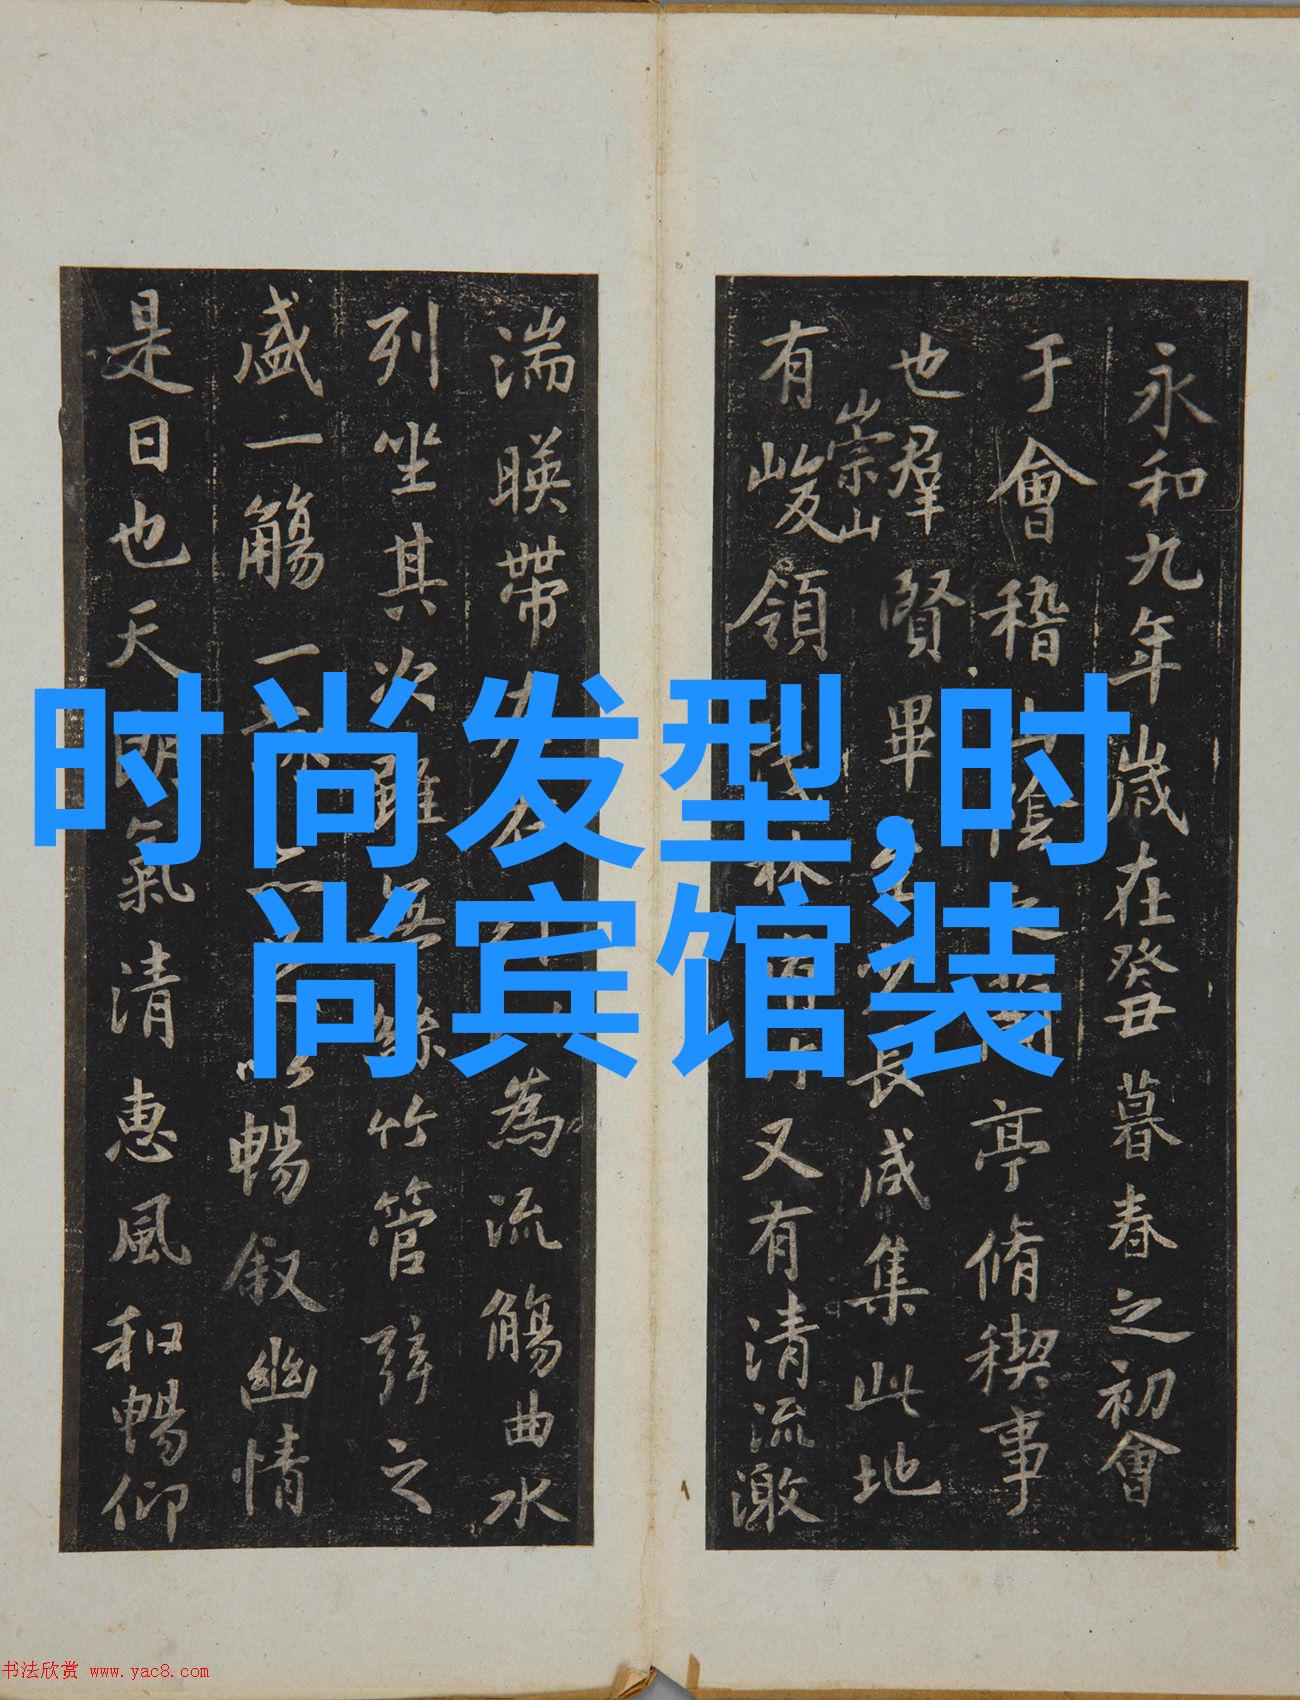 永和九年歲在癸丑暮春之初會
于會稽山陰之蘭亭脩禊事
也羣賢畢至少長咸集此地
崇山
有峻領茂林脩竹又有清流激
湍暎帶左右為流觴曲水
列坐其次雖無絲竹管弦之
盛一觴一詠以暢叙幽情
是日也天朗氣清惠風和暢仰
时尚发型,时
尚宾馆装
书法欣赏 www.yac8.com